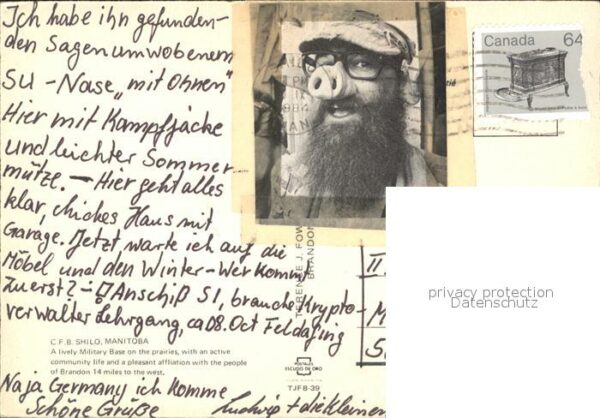 Ich habe ihn gefunden-
den Sagenumwobenem
SU-Nase „mit Ohnen"
Hier mit Kampfjacke
und leichter Sommer
mütze. – Hier geht alles
klar, chickes Haus mit
Garage. Jetzt warte ich auf die
Möbel und den Winter-Wer kommt
Zuerst? – Anschiß S1, brauche Krypto-
verwalter Lehrgang, ca 08. Oct Feldafing
C.F.B. SHILO, MANITOBA
A lively Military Base on the prairies, with an active
community life and a pleasant affliation with the people
of Brandon 14 miles to the west.
Naja Germany ich komme
Schöne Grüße Ludwig + die kleinen
TERENCE J. FOW
BRANDON
POSTALES
ESCUDO DE ORO
TJFB-39
Canada 64
II
M
S
privacy protection
Datenschutz